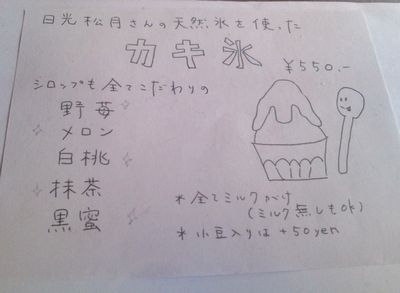 日光松月さんの天然氷を使った
カキ氷
¥550.-
シロップも全てこだわりの
野苺
メロン
白桃
抹茶
黒蜜
*全てミルクがけ
(ミルク無しもok)
*小豆入りは+50yen